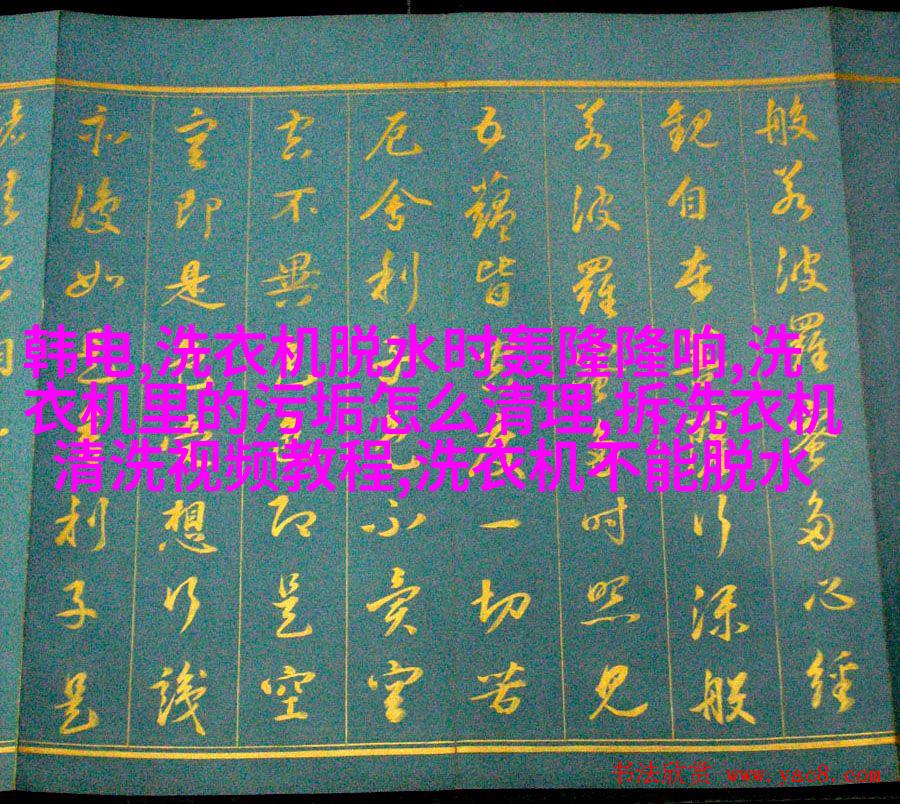 般若波羅蜜多心經
觀自在行深般
若波羅多時照見
五蘊皆一切苦
厄舍利不異空
空不異即是空
空即是想行識
亦復如是利子是
韩电,洗衣机脱水时轰隆隆响,洗
衣机里的污垢怎么清理,拆洗衣机
清洗视频教程,洗衣机不能脱水
书法欣赏 www.yac8.com